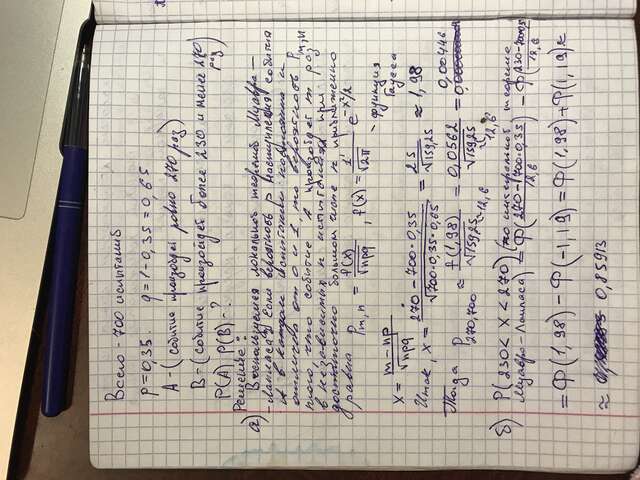 Всего - 700 испытаний
p = 0,35. q = 1 - 0,35 = 0,65
A - (событие произойд ровно 270 раз)
B = (событие произойдет более 230 и менее 270 раз)
P(A), P(B) - ?
Решение:
а) Воспользуемся локальной теоремой Муавра -
- Лапласа: Если вероятность p наступления события
A в каждом испытании постоянна и
отлична от 0 и 1, то вероятность P m,n
того, что событие A произойдет m раз
в n независимых испытаниях при
достаточно большом числе n приближенно
равна P m,n = f(x)/√npq, f(x) = 1/√2π e^(-x²/2) - функция Гаусса
x = (m - np)/√npq
Итак, x = (270 - 700·0,35)/√(700·0,35·0,65) = 25/√159,25 ≈ 1,98
Тогда P 270,700 ≈ f(1,98)/√159,25 = 0,0562/√159,25 = 0,00446
≈12,6 ≈12,6
б) P(230 < X < 270) (по интегральной теореме
Муавра - Лапласа) = Ф((270 - 700·0,35)/12,6) - Ф((230 - 700·0,35)/12,6)
= Ф(1,98) - Ф(-1,19) = Ф(1,98) + Ф(1,19) ≈
≈ 0,85913